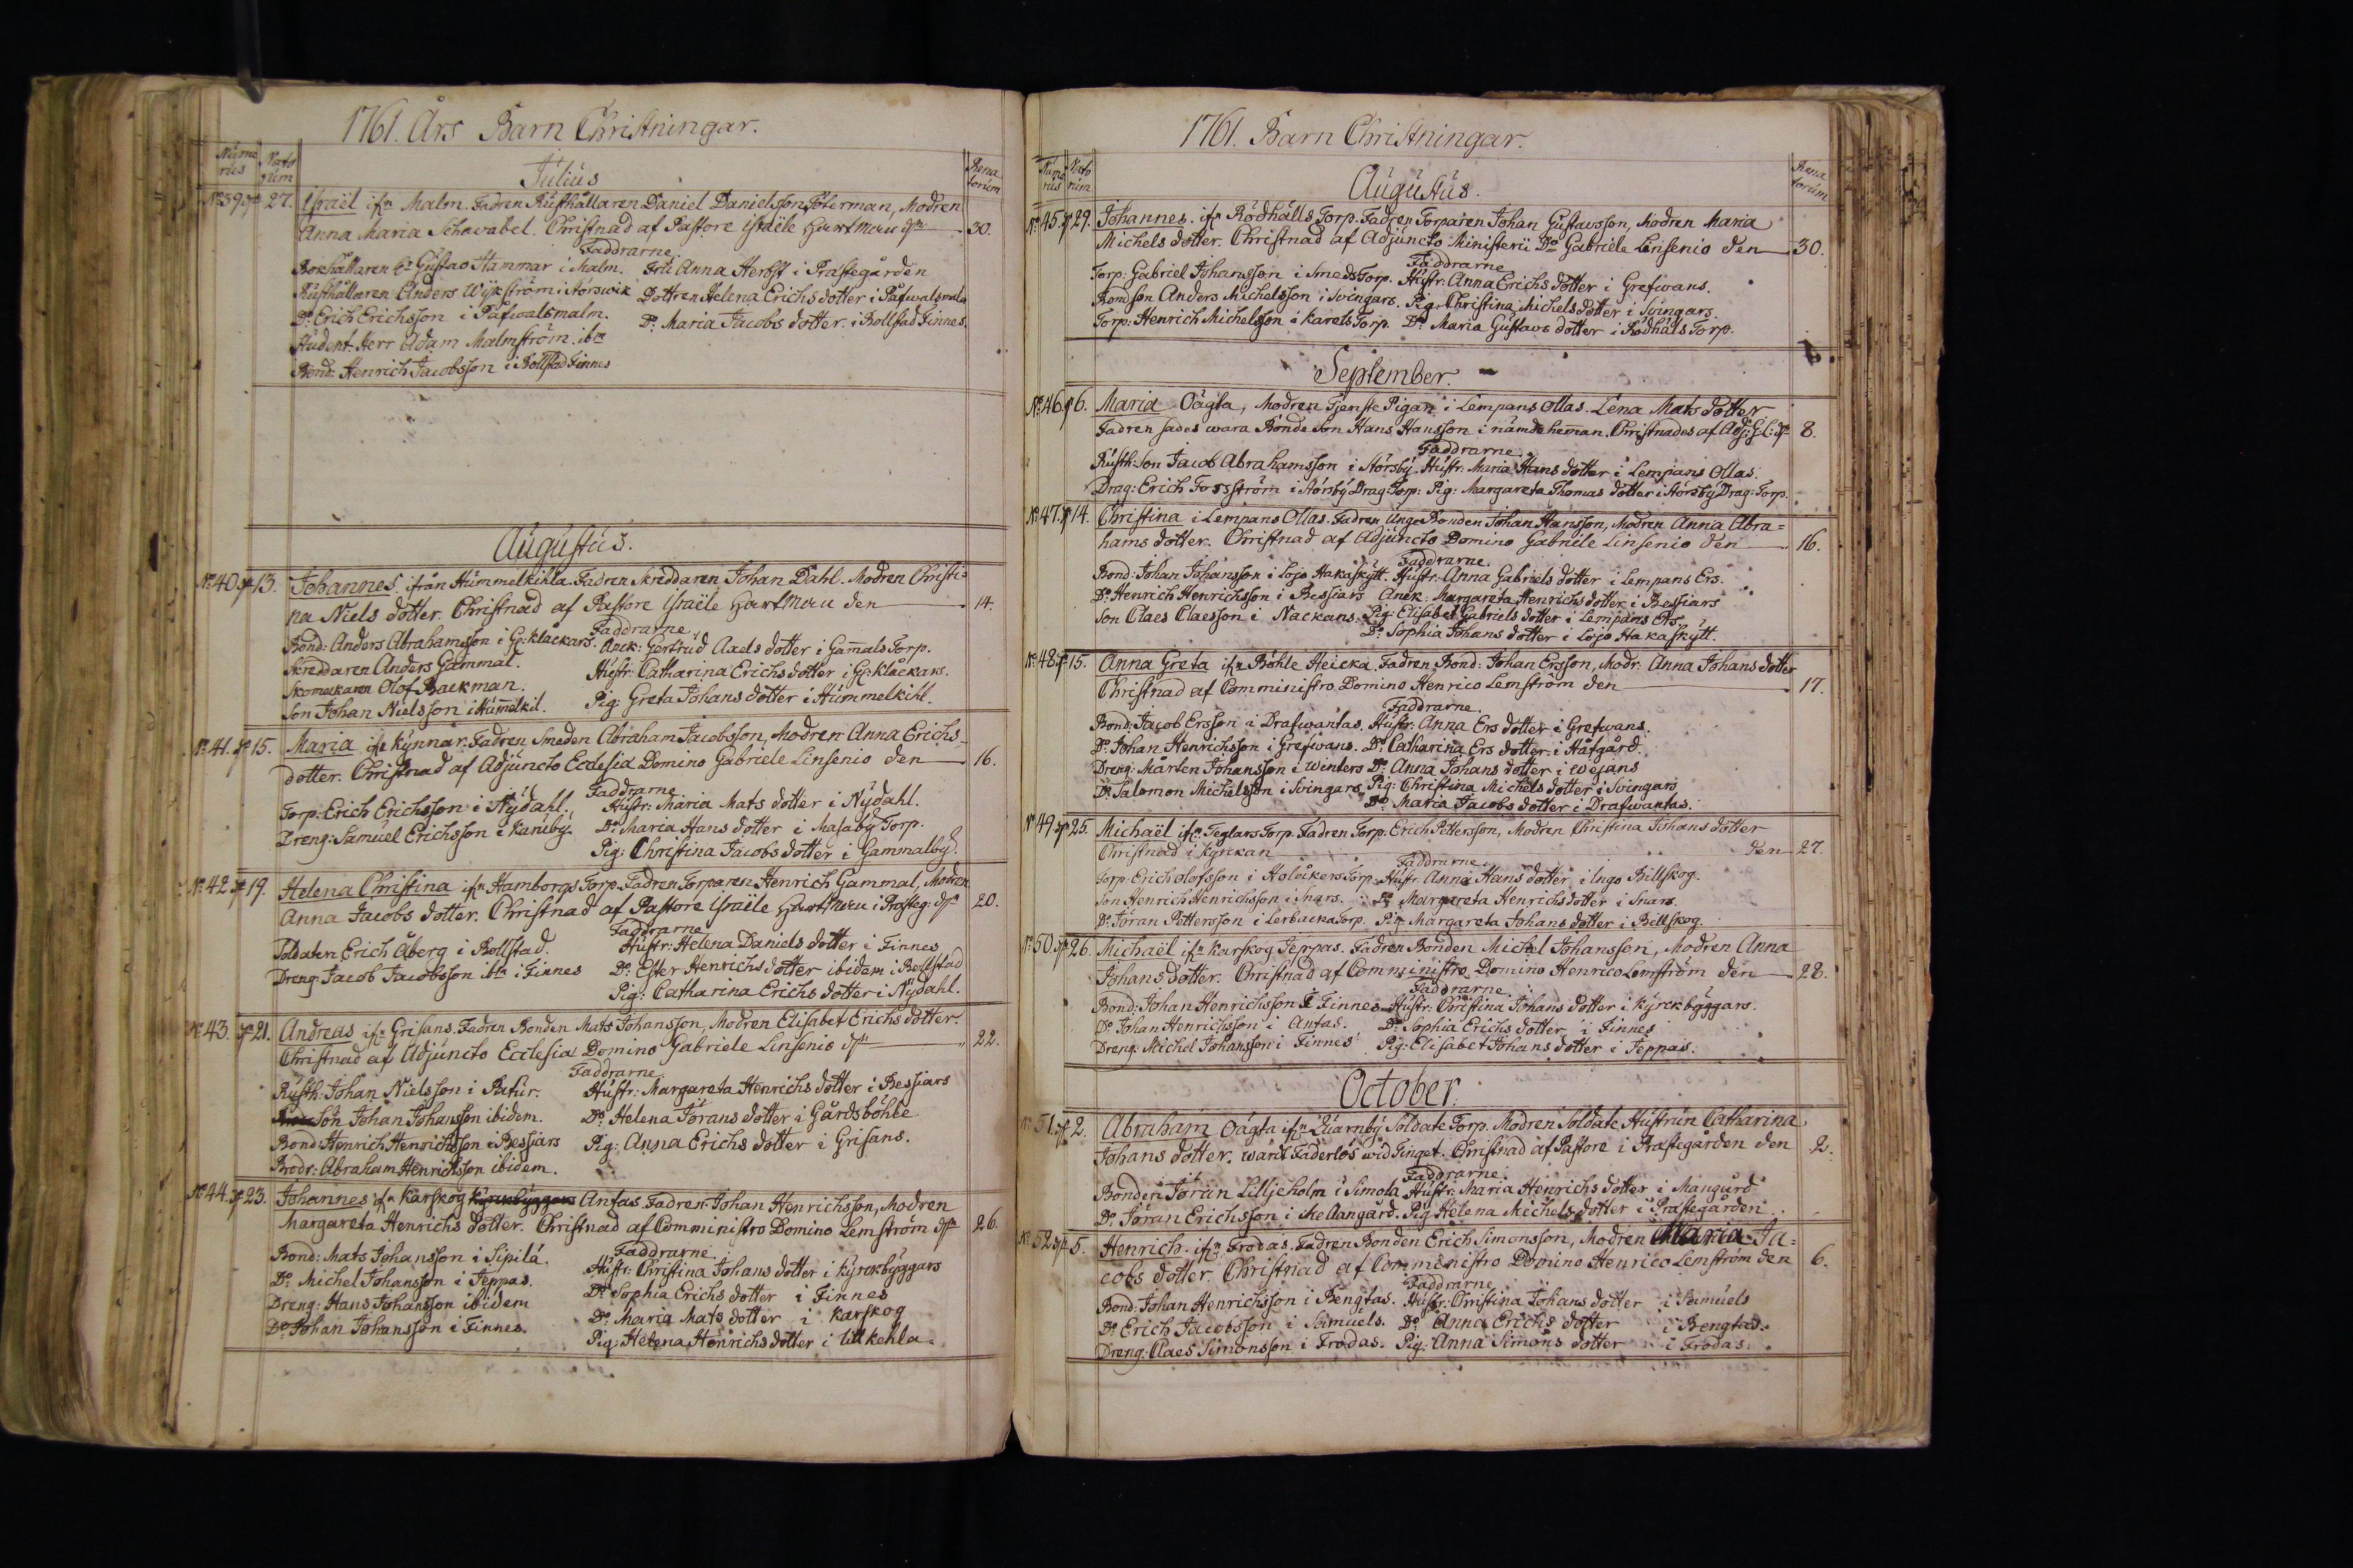 1761. Års Barn Christningar.
Nume rus
Nato rum
Rena torum
Julius
No 39. 27. Israël ifn Malm. Fadren Rusthållaren Daniel Danielsson Söterman, Modren
Anna Maria Schavabel. Christnad af Pastore Israële Hartman dn 30.
Faddrarne
Bokhållaren Gustav Hammar i Malm. Fru Anna Herbst i Prästegården
Rusthållaren Anders Wijkström i Norswik Dottren Helena Erichs dotter i Påfwalsmalm
Do. Erich Erichsson i Påfwalsmalm. Do. Maria Jacobs dotter i Bollstad Finnes.
Student Herr Adam Malmström ibm
Bond: Henrich Jacobsson i Bollstad Finnes
Augustus.
No 40. 13. Johannes ifrån Hummelkihla. Fadren Skreddaren Johan Dahl. Modren Christi=
na Niels dotter. Christnad af Pastore Israële Hartman den 14.
Faddrarne
Bond: Anders Abrahamsson i Gr: Klåckars. Anck: Gertrud Axels dotter i Gammals Torp.
Skreddaren Anders Gammal. Hustr: Catharina Erichs dotter i Gr: Klåckars.
Skomakaren Olof Backman. Pig: Greta Johans dotter i Hummelkihl.
Son Johan Nielsson i Hummelkil.
No. 41. 15. Maria ifn Kynnar. Fadren Smeden Abraham Jacobsson, Modren Anna Erichs=
dotter. Christnad af Adjuncto Ecclesiæ Domino Gabriele Linsenio den 16.
Faddrarne
Torp: Erich Erichsson i Nydahl. Hustr: Maria Mats dotter i Nydahl.
Dreng: Samuel Erichsson i Karuby. Do. Maria Hans dotter i Masaby Torp.
Pig: Christina Jacobs dotter i Gammalby.
No. 42. 19. Helena Christina ifn Hamborgs Torp. Fadren Torparen Henrich Gammal, Modren
Anna Jacobs dotter. Christnad af Pastore Israële Hartman i Prästeg: dn 20.
Faddrarne
Soldaten Erich Åberg i Bollstad. Hustr: Helena Daniels dotter i Finnes
Dreng: Jacob Jacobsson ibm i Finnes Do. Ester Henrichs dotter ibidem i Bollstad
Pig: Catharina Erichs dotter i Nydahl.
No. 43. 21. Andreas ifn Grisans. Fadren Bonden Mats Johansson, Modren Elisabet Erichs dotter.
Christnad af Adjuncto Ecclesiæ Domino Gabriele Linsenio dn 22.
Faddrarne
Rusth: Johan Nielsson i Patur. Hustr: Margareta Henrichs dotter i Bessiars
Son Johan Johansson ibidem. Do. Helena Jörans dotter i Gårdsböhle
Bond Henrich Henrichsson i Bessiars Pig: Anna Erichs dotter i Grisans.
Brodr: Abraham Henrichsson ibidem.
No. 44. 23. Johannes ifn Karskog Kyrckbyggars Antas. Fadren Johan Henrichsson, Modren
Margareta Henrichs dotter. Christnad af Comministro Domino Lemström dn 26.
Faddrarne
Bond: Mats Johansson i Sipilä. Hustr: Christina Johans dotter i Kyrckbyggars
Do. Michel Johansson i Jeppas. Do. Sophia Erichs dotter i Finnes
Dreng: Hans Johansson ibidem Do. Maria Mats dotter i Karskog
Do Johan Johansson i Finnes. Pig: Helena Henrichs dotter i Uttkehla.
1761. Barn Christningar.
Nume rus
Nato rum
Rena torum
Augustus.
No. 45. 29. Johannes. ifn Rödhälls Torp. Fadren Torparen Johan Gustavsson, Modren Maria
Michels dotter. Christnad af Adjuncto Ministerii Do Gabriele Linsenio den 30.
Faddrarne
Torp: Gabriel Johansson i Smeds Torp. Hustr: Anna Erichs dotter i Grefwans.
Bondson Anders Michelsson i Svingars. Pig: Christina Michels dotter i Svingars.
Torp: Henrich Michelsson i Karels Torp. Do. Maria Gustavs dotter i Rödhäls Torp.
September.
No. 46. 6. Maria Oägta, Modren Tjenste Pigan i Lempans Ollas. Lena Mats dotter
Fadren sades wara Bonde Son Hans Hansson i nämde heman. Christnades af Adj: G: L: dn 8.
Faddrarne.
Rusth: Son Jacob Abrahamsson i Störsby. Hustr: Maria Hans dotter i Lempans Ollas.
Drag: Erich Forsström i Störsby Drag: Torp: Pig: Margareta Thomas dotter i Störsby Drag: Torp.
No. 47. 14. Christina i Lempans Ollas. Fadren Unge Bonden Johan Hansson, Modren Anna Abra=
hams dotter. Christnad af Adjuncto Domino Gabriele Linsenio den 16.
Faddrarne.
Bond: Johan Johansson i Lojo Hakaskytt. Hustr: Anna Gabriels dotter i Lempans Ers.
Do. Henrich Henrichsson i Bessiars Anck. Margareta Henrichs dotter i Bessiars
Son Claes Claesson i Nackans. Pig: Elisabet Gabriels dotter i Lempans Ers.
Do. Sophia Johans dotter i Lojo Hakaskytt.
No. 48. 15. Anna Greta ifn Böhle Heicka. Fadren Bond: Johan Ersson, Modr: Anna Johans dotter
Christnad af Comministro Domino Henrico Lemström den 17.
Faddrarne.
Bond: Jacob Ersson i Drafwantas. Hustr: Anna Ers dotter i Grefwans.
Do. Johan Henrichsson i Grefwans. Do. Catharina Ers dotter i Håfgård.
Dreng: Mårten Johansson i Winters Do. Anna Johans dotter i Wejans
Do. Salomon Michelsson i Svingars Pig: Christina Michels dotter i Svingars
Do. Maria Jacobs dotter i Drafwantas.
No. 49. 25. Michaël ifn Teglars Torp. Fadren Torp. Erich Pettersson, Modren Christina Johans dotter
Christnad i Kyrckan den 27.
Faddrarne
Torp. Erich Olofsson i Holvikens Torp. Hustr. Anna Hans dotter i Ingo Billskog.
Son Henrich Henrichsson i Snars. Do Margareta Henrichs dotter i Snars.
Do. Jöran Pettersson i Lerbacka Torp. Pig Margareta Johans dotter i Billskog.
No. 50. 26. Michaël ifn Karskog Jeppas. Fadren Bonden Michel Johansson, Modren Anna
Johans dotter. Christnad af Comministro Domino Henrico Lemström den 28.
Faddrarne
Bond: Johan Henrichsson i Finnes Hustr: Christina Johans dotter i Kyrckbyggars.
Do Johan Henrichsson i Antas. Do. Sophia Erichs dotter i Finnes
Dreng. Michel Johansson i Finnes Pig: Elisabet Johans dotter i Jeppas.
October.
No 51. 2. Abraham Oägta ifn Quarnby Soldate Torp. Modren Soldate Hustrun Catharina
Johans dotter. warit Faderlös wid Tinget. Christnad af Pastore i Prästegården den 2.
Faddrarne.
Bonden Jöran Lilljeholm i Simola Hustr: Maria Henrichs dotter i Mangård
Do. Jöran Erichsson i Mellangård. Pig Helena Michels dotter i Prästegården
No. 52. 5. Henrich. ifn Frodas. Fadren Bonden Erich Simonsson, Modren Maria Ja=
cobs dotter. Christnad af Comministro Domino Henrico Lemström den 6.
Faddrarne
Bond: Johan Henrichsson i Bengtas. Hustr: Christina Johans dotter i Samuels
Do Erich Jacobsson i Samuels. Do. Anna Erichs dotter i Bengtas.
Dreng: Claes Simonsson i Frodas. Pig: Anna Simons dotter i Frodas.